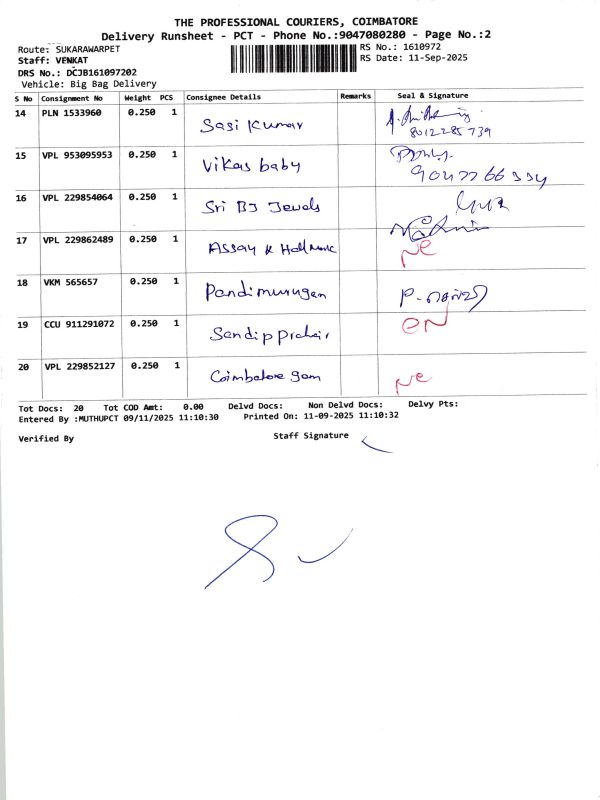 THE PROFESSIONAL COURIERS, COIMBATORE
Delivery Runsheet - PCT - Phone No.:9047080280 - Page No.:2
Route: SUKARAWARPET RS No.: 1610972
Staff: VENKAT RS Date: 11-Sep-2025
DRS No.: DCJB161097202
Vehicle: Big Bag Delivery
S No Consignment No Weight PCS Consignee Details Remarks Seal & Signature
14 PLN 1533960 0.250 1 Sasi Kumar
8012285739
15 VPL 953095953 0.250 1 Vikas baby
16 VPL 229854064 0.250 1 Sri BJ Jewels
17 VPL 229862489 0.250 1 Assay & Hallmark Ne
18 VKM 565657 0.250 1 Pandimurugan
19 CCU 911291072 0.250 1 Sandip
20 VPL 229852127 0.250 1 Coimbatore gem Ne
Tot Docs: 20 Tot COD Amt: 0.00 Delvd Docs: Non Delvd Docs: Delvy Pts:
Entered By :MUTHUPCT 09/11/2025 11:10:30 Printed On: 11-09-2025 11:10:32
Verified By Staff Signature